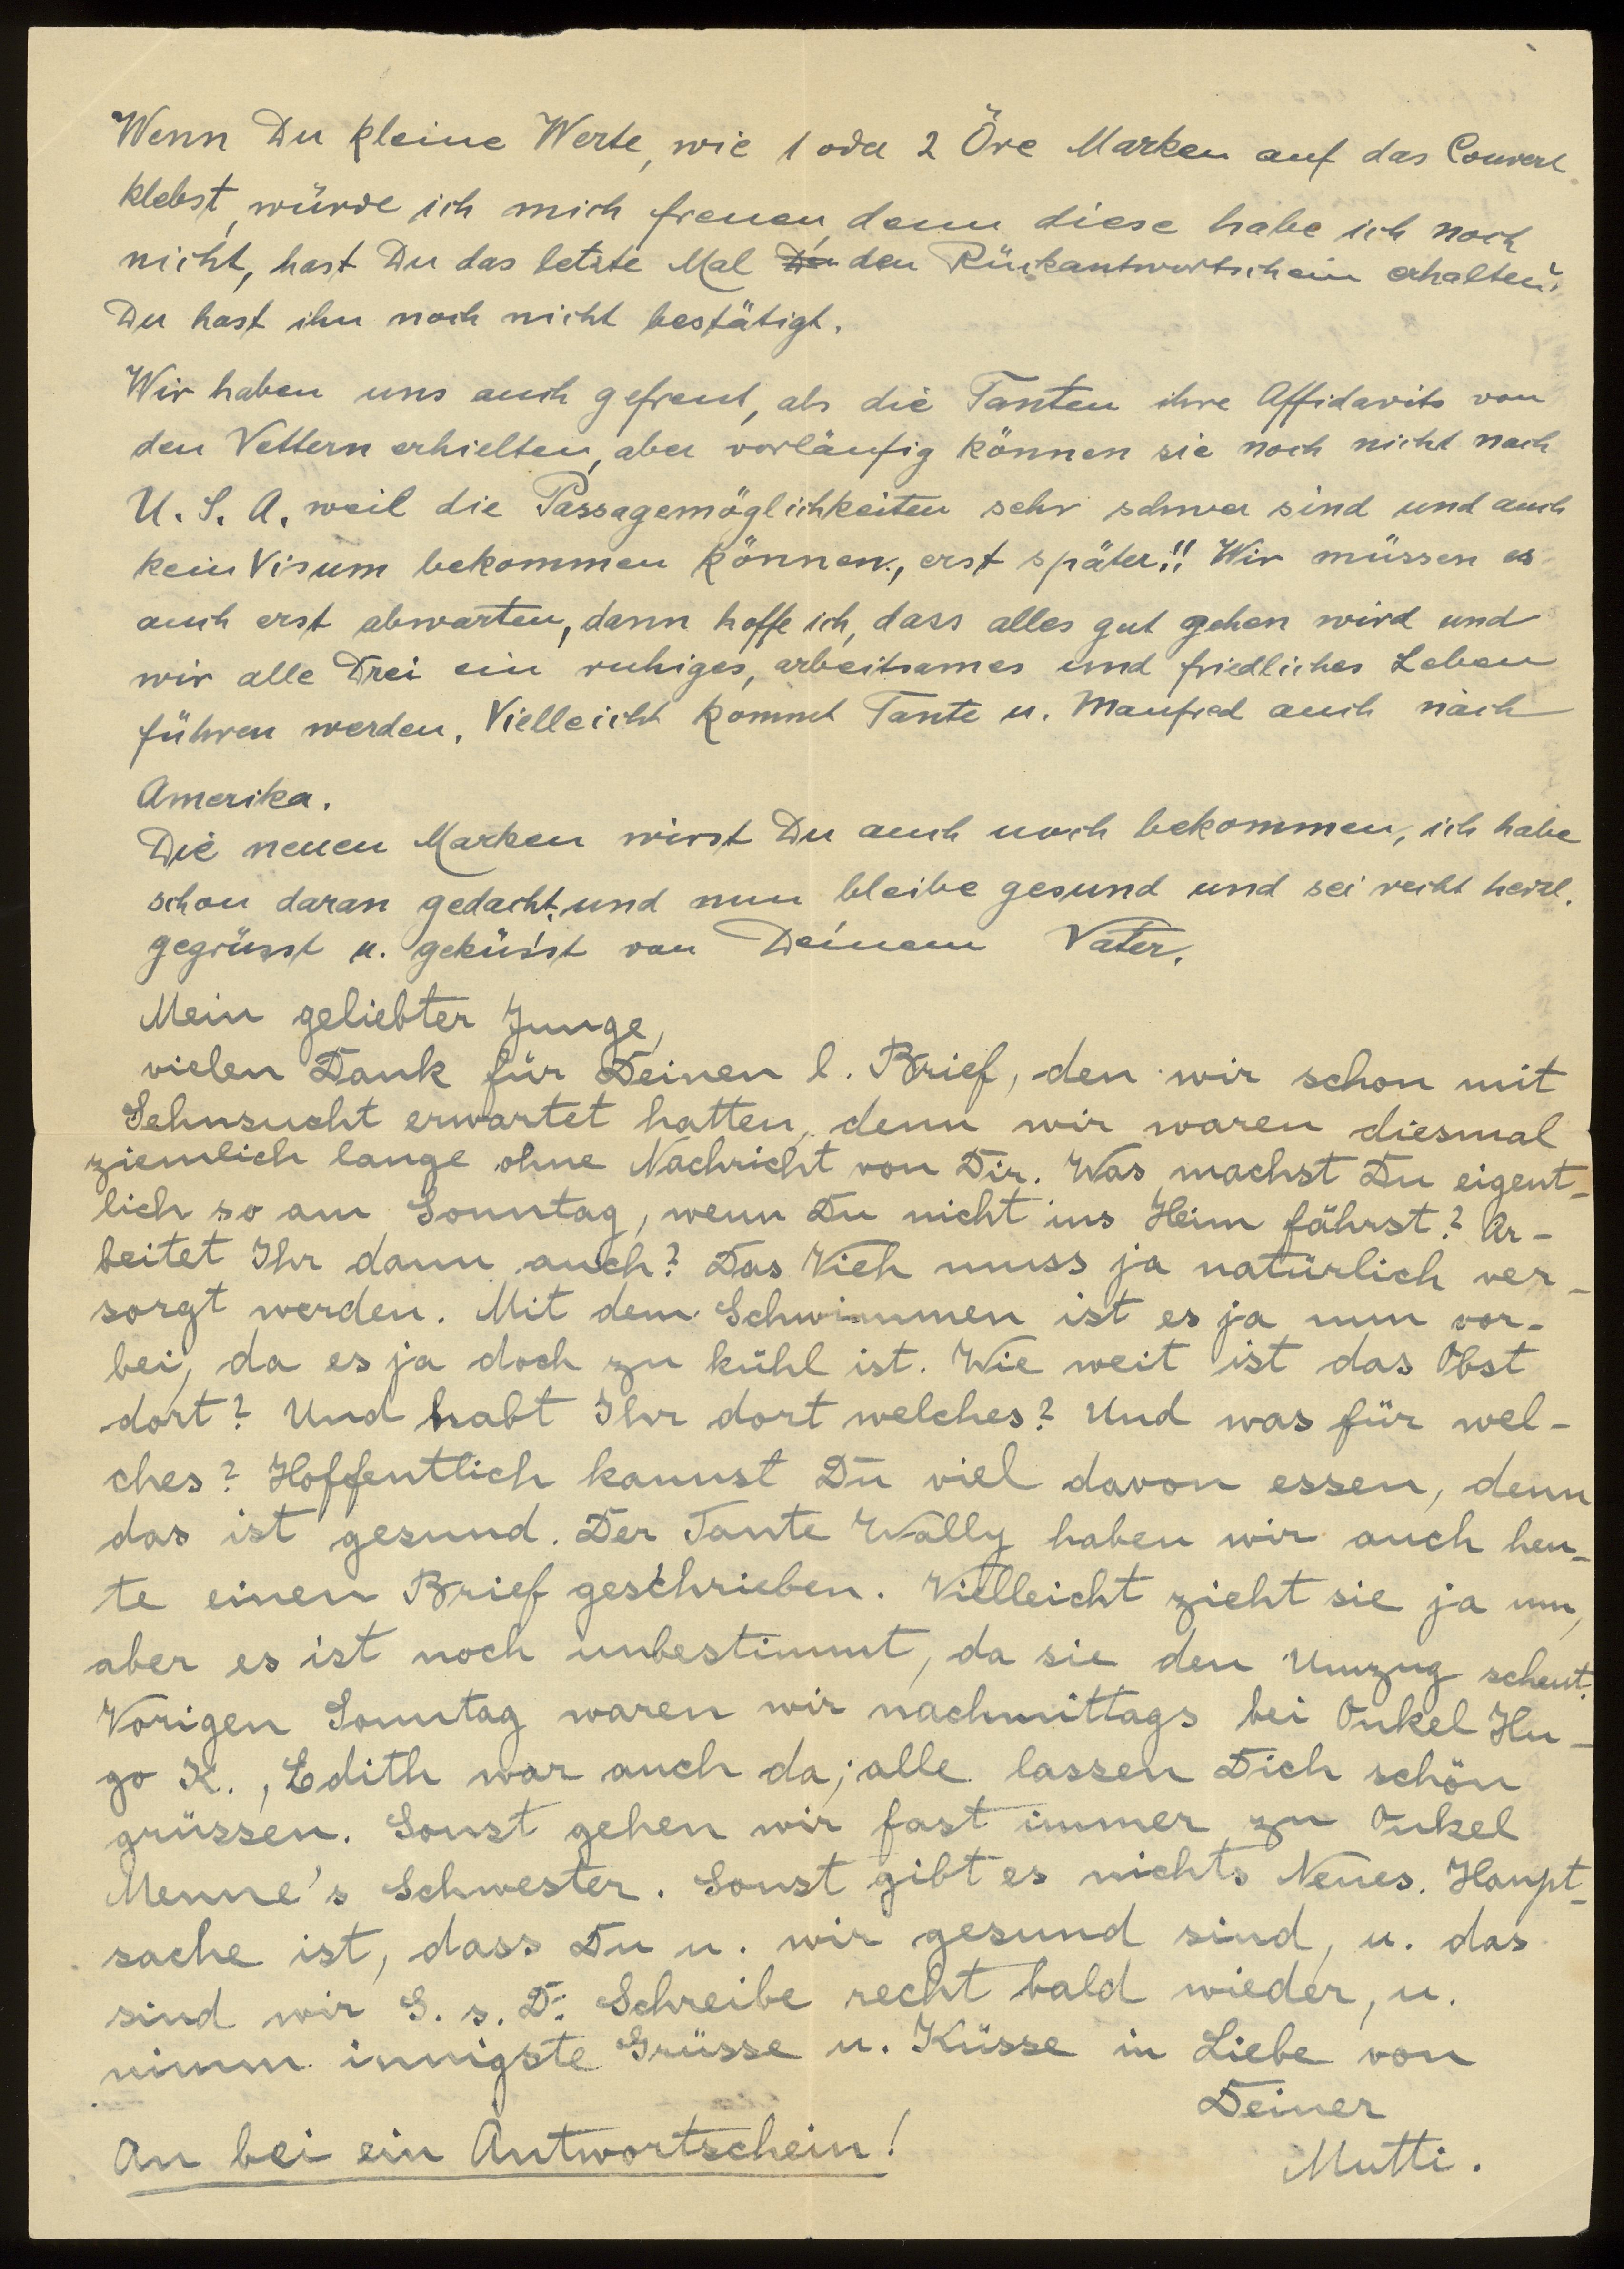 Wenn Du kleine Werte, wie 1 oder 2 Öre Marken auf das Couvert
klebst, würde ich mich freuen, denn diese habe ich noch
nicht, hast Du das letzte Mal den Rückantwortschein erhalten?
Du hast ihn noch nicht bestätigt.
Wir haben uns auch gefreut, als die Tanten ihre Affidavits von
den Vettern erhielten, aber vorläufig können sie noch nicht nach
U. S. A. weil die Passagemöglichkeiten sehr schwer sind und auch
kein Visum bekommen können, erst später!! Wir müssen es
auch erst abwarten, dann hoffe ich, dass alles gut gehen wird und
wir alle Drei ein ruhiges, arbeitsames und friedliches Leben
führen werden. Vielleicht kommt Tante u. Manfred auch nach
Amerika.
Die neuen Marken wirst Du auch noch bekommen, ich habe
schon daran gedacht, und nun bleibe gesund und sei recht herzl.
gegrüsst u. geküsst von Deinem Vater.
Mein geliebter Junge,
vielen Dank für Deinen l. Brief, den wir schon mit
Sehnsucht erwartet hatten, denn wir waren diesmal
ziemlich lange ohne Nachricht von Dir. Was machst Du eigent-
lich so am Sonntag, wenn Du nicht ins Heim fährst? Ar-
beitet Ihr dann auch? Das Vieh muss ja natürlich ver-
sorgt werden. Mit dem Schwimmen ist es ja nun vor-
bei, da es ja doch zu kühl ist. Wie weit ist das Obst
dort? Und habt Ihr dort welches? Und was für wel-
ches? Hoffentlich kannst Du viel davon essen, denn
das ist gesund. Der Tante Wally haben wir auch heu-
te einen Brief geschrieben. Vielleicht zieht sie ja um,
aber es ist noch unbestimmt, da sie den Umzug scheut.
Vorigen Sonntag waren wir nachmittags bei Onkel Hu-
go K., Edith war auch da; alle lassen Dich schön
grüssen. Sonst gehen wir fast immer zu Onkel
Menne's Schwester. Sonst gibt es nichts Neues. Haupt-
sache ist, dass Du u. wir gesund sind, u. das
sind wir G. s. D. Schreibe recht bald wieder, u.
nimm innigste Grüsse u. Küsse in Liebe von
Deiner
Mutti.
An bei ein Antwortschein!